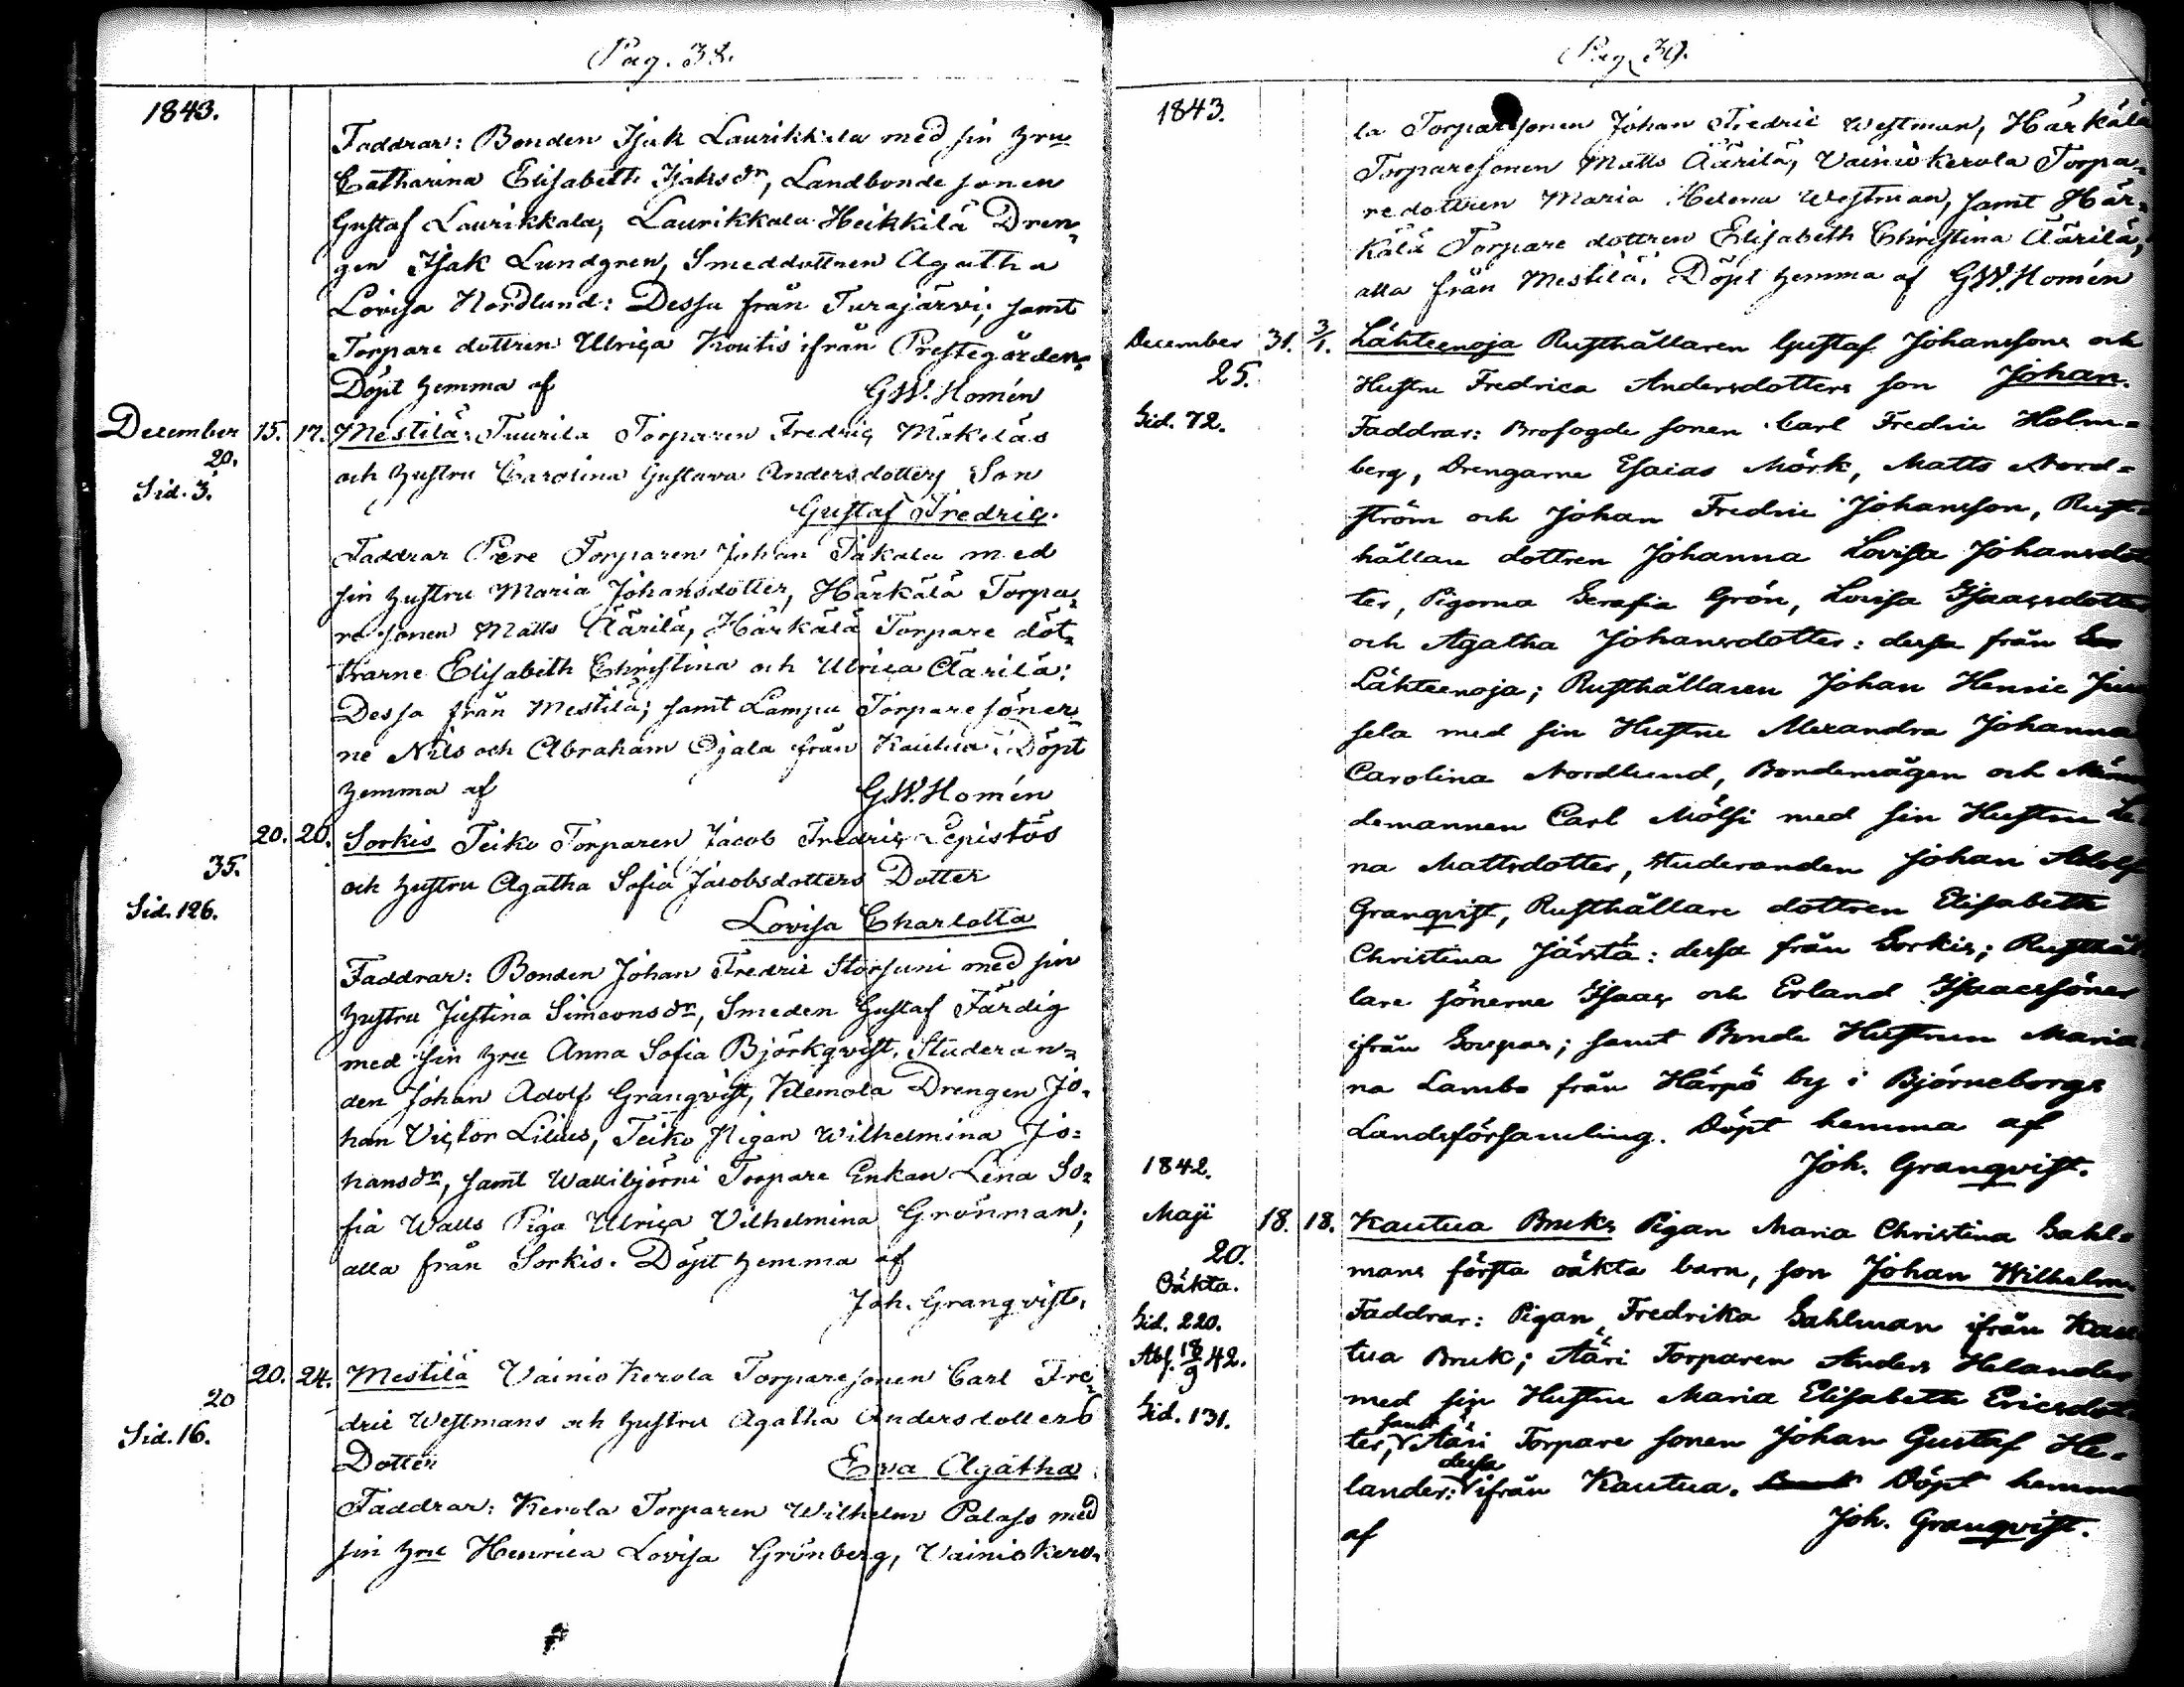 Pag. 38.
1843.
Faddrar: Bonden Isak Laurikkala med sin hru
Catharina Elisabeth Isaksdr, Landbonde sonen
Gustaf Laurikkala, Laurikkala Heikkilä Dren-
gen Isak Lundgren, Smeddottren Agatha
Lovisa Nordlund: Dessa från Turajärvi; samt
Torpare dottren Ulrica Koutis ifrån Prestegården.
Döpt hemma af G.W. Homén
December 15. 17. Mestilä: Tuurila Torparen Fredric Mäkeläs
20. och hustru Carolina Gustava Andersdotters Son
Sid. 3.
Gustaf Fredric.
Faddrar Pere Torparen Johan Takala med
sin hustru Maria Johansdotter, Härkälä Torpa-
re sonen Matts Äärilä, Härkälä Torpare döt-
trarne Elisabeth Christina och Ulrica Äärilä:
Dessa från Mestilä; samt Lampu Torpare söner-
ne Nils och Abraham Ojala från Kautua. Döpt
hemma af G.W. Homén
20. 20. Sorkis Teiko Torparen Jacob Fredric Lepistös
35. och hustru Agatha Sofia Jacobsdotters Dotter
Sid. 126. Lovisa Charlotta
Faddrar: Bonden Johan Fredric Storsuni med sin
hustru Justina Simeonsdr, Smeden Gustaf Färdig
med sin hru Anna Sofia Björkqvist, Studeran-
den Johan Adolf Granqvist, Klemola Drengen Jo-
han Victor Lilius, Teiko Pigan Wilhelmina Jo-
hansdr, samt Wallibjörni Torpare Enkan Lena So-
fia Walls Piga Ulrica Vilhelmina Grönman;
alla från Sorkis. Döpt hemma af
Joh. Granqvist.
20. 24. Mestilä Vainio Kerola Torparesonen Carl Fre-
20 dric Westmans och hustru Agatha Andersdotters
Sid. 16.
Dotter Eva Agatha
Faddrar: Kerola Torparen Wilhelm Palass med
sin hru Henrica Lovisa Grönberg, Vainiokero-
Pag. 39.
1843.
la Torparesonen Johan Fredric Westman, Härkälä
Torparesonen Matts Äärilä, Vainiokerola Torpa-
redottren Maria Helena Westman, samt Här-
kälä Torpare dottren Elisabeth Christina Äärilä,
alla från Mestilä. Döpt hemma af G.W. Homén
December 31. 3/1. Lähteenoja Rusthållaren Gustaf Johanssons och
25. Hustru Fredrica Andersdotters son Johan.
Sid. 72. Faddrar: Brofogde sonen Carl Fredric Holm-
berg, Drengarne Esaias Mörk, Matts Nord-
ström och Johan Fredric Johansson, Rust-
hållare dottren Johanna Lovisa Johansdot
ter, Pigorna Serafia Grön, Lovisa Isaacsdotter
och Agatha Johansdotter: dessa från
Lähteenoja; Rusthållaren Johan Henric
sela med sin Hustru Alexandra Johanna
Carolina Nordlund, Bondemågen och
demannen Carl Mölsi med sin Hustru Le
na Mattsdotter, Studeranden Johan Adolf
Granqvist, Rusthållare dottren Elisabeth
Christina Järstä: dessa från Sorkis; Rusthål
lare sönerne Isaac och Erland Isaacssöner
ifrån Sorpas; samt Bonde Hustrun Maria
na Lambo från Härpö by i Björneborgs
Landsförsamling. Döpt hemma af
Joh. Granqvist.
1842.
Maji 18. 18. Kautua Bruks Pigan Maria Christina Sahl-
20. mans första oäkta barn, son Johan Wilhelm.
Oäkta.
Sid. 220. Faddrar: Pigan Fredrika Sahlman ifrån Kau
Abs. 18/9 42. tua Bruk; Ääri Torparen Anders Helander
Sid. 131. med sin Hustru Maria Elisabeth Ericsdot-
ter, samt Ääri Torpare sonen Johan Gustaf He-
lander: dessa ifrån Kautua. Döpt hemma
af Joh. Granqvist.